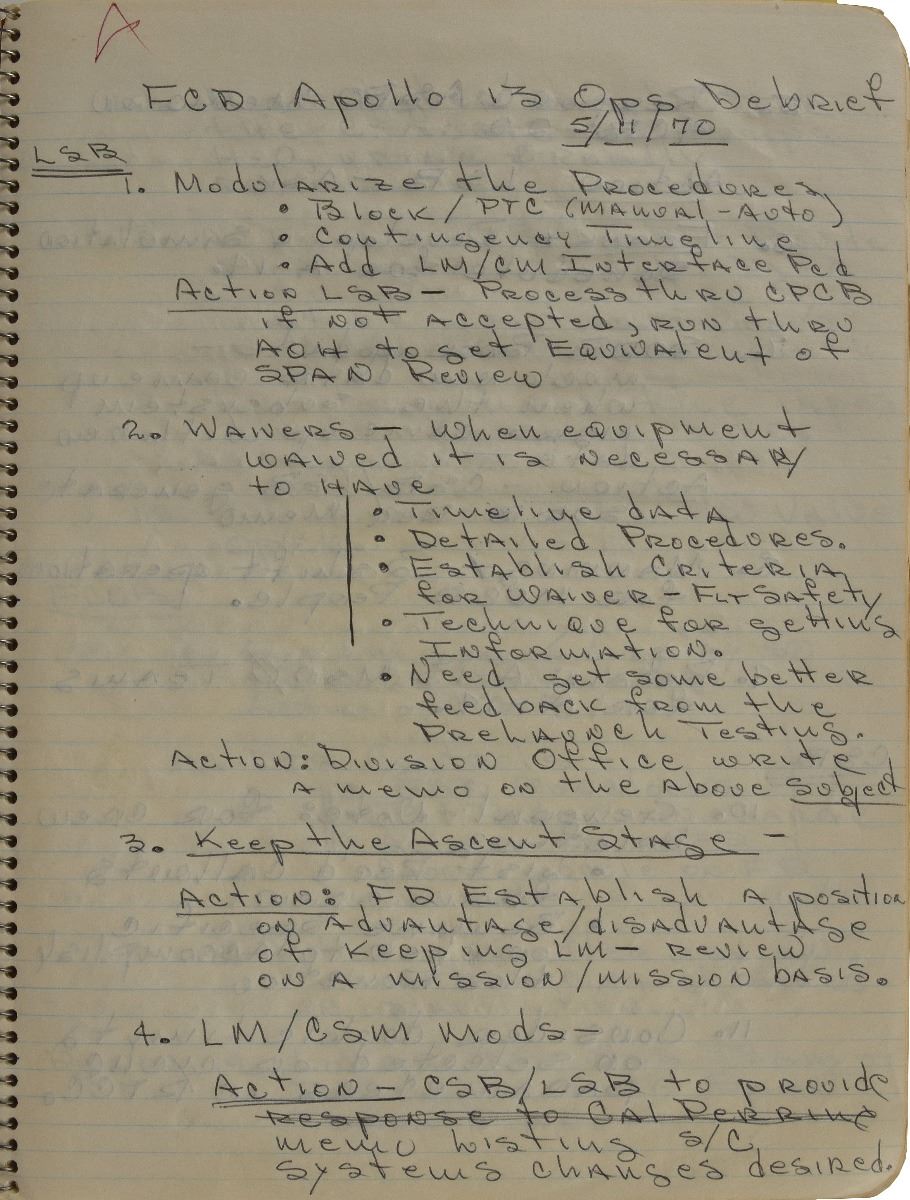 A
FCD Apollo 13 Ops Debrief
5/11/70
LSB
1. Modularize the Procedures
• Block/PTC (Manual-Auto)
• Contingency Timeline
• Add LM/CM Interface Pcd
Action LSB - Process thru CPCB
if not accepted, run thru
AOH to get Equivalent of
SPAN Review
2. Waivers - When equipment
waived it is necessary
to have
• Timeline data
• Detailed Procedures.
• Establish Criteria
for Waiver - Flt Safety
• Technique for getting
Information.
• Need get some better
feedback from the
Prelaunch Testing.
Action: Division Office write
a memo on the above subject
3. Keep the Ascent Stage -
Action: FD Establish a position
on advantage/disadvantage
of keeping LM - review
on a mission/mission basis.
4. LM/CSM Mods -
Action - CSB/LSB to provide
response to Cal Perrine
memo listing S/C
systems changes desired.